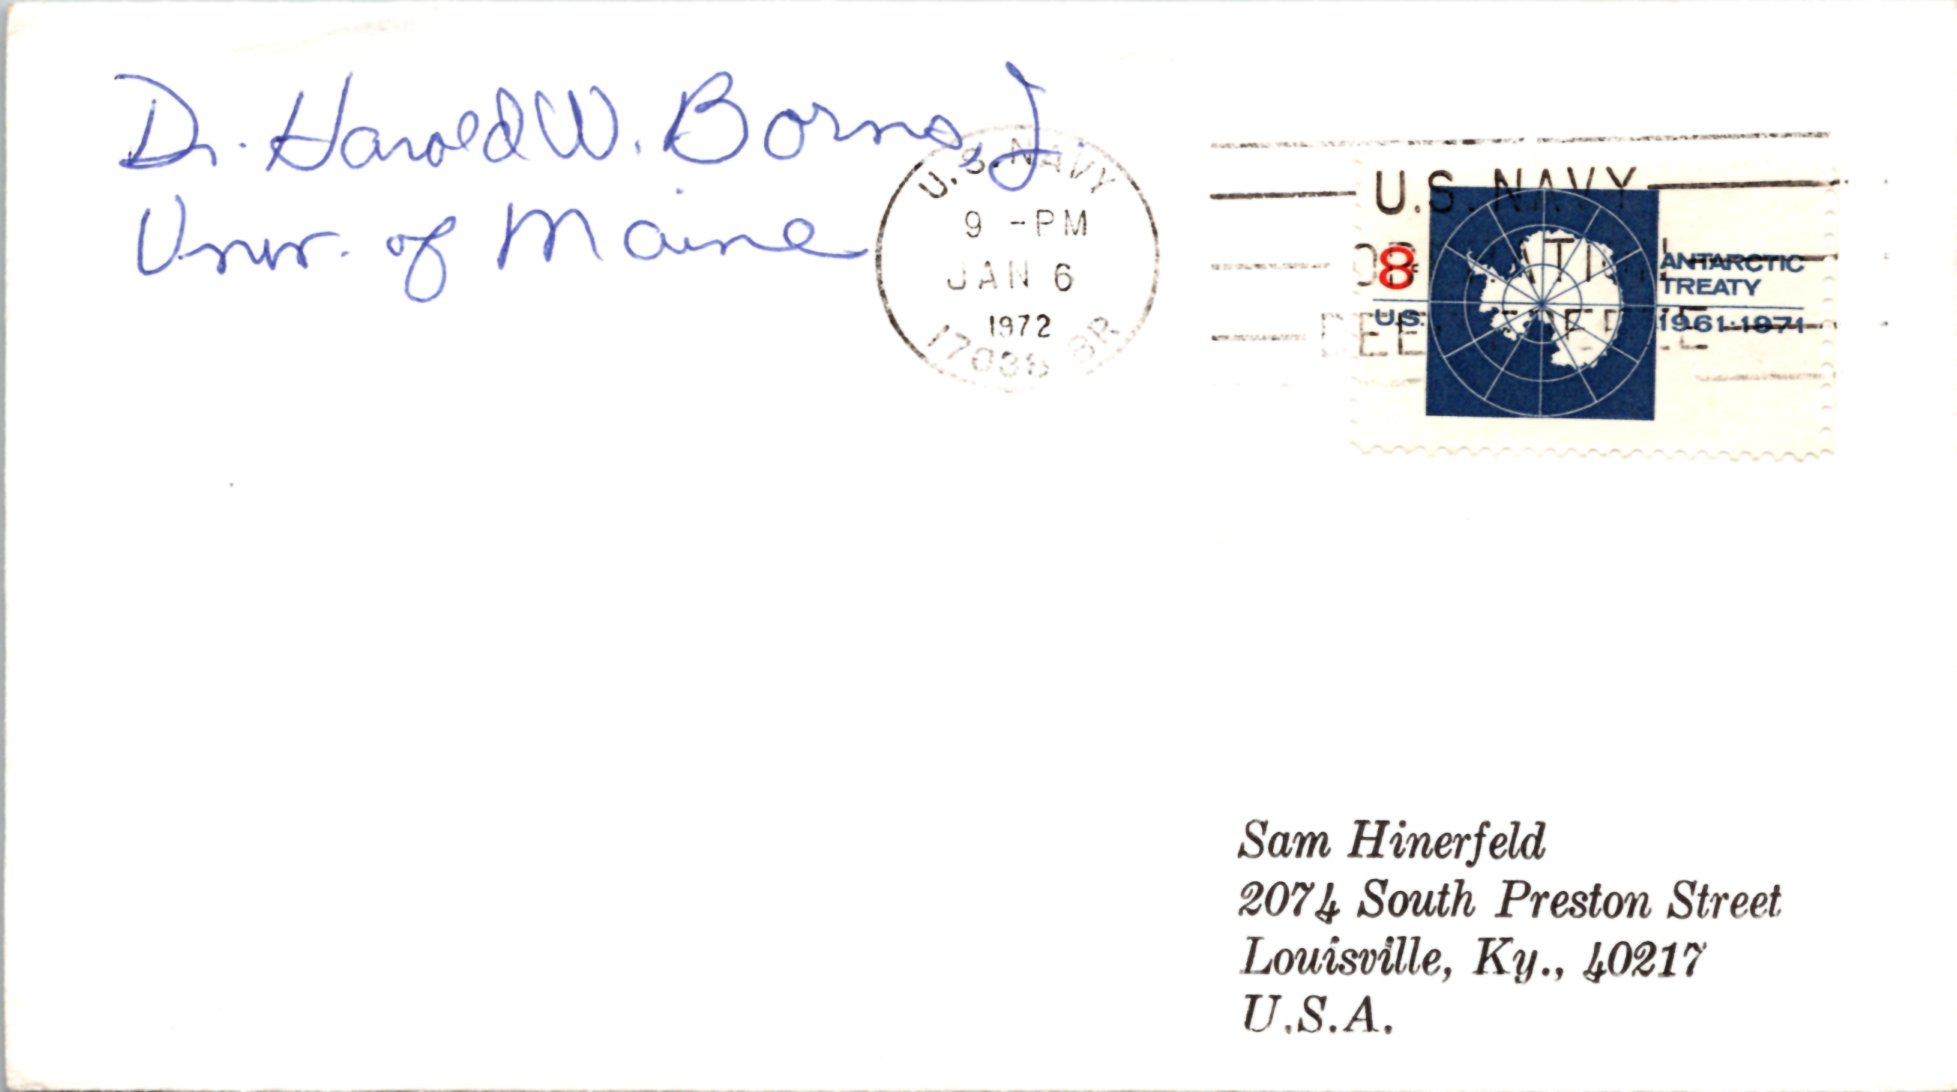 Dr. Harold W. Borns, Jr.
Univ. of Maine
U.S. NAVY
9 -PM
JAN 6
1972
17038 BR.
U.S. NAVY
DEEP FREEZE
8¢
U.S.
ANTARCTIC
TREATY
1961-1971
Sam Hinerfeld
2074 South Preston Street
Louisville, Ky., 40217
U.S.A.